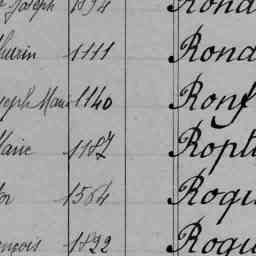 Joseph 1894 Rond
thurin 1111 Rond
seph Marie 1140 Ronf
laire 1187 Ropt
tor 1564 Roqu
ançois 1822 Roqu